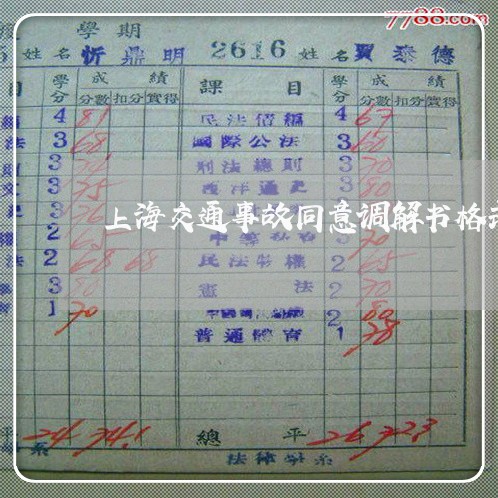 7788.com
學期
5 姓名 忻鼎明 2616 姓名 賈泰德
目 學分 成績 課目 學分 成績
分數 扣分 實得 分數 扣分 實得
4 81 民法債編 4 67
法 3 68 國際公法 3 60
則 3 刑法總則 3 70
3 75 西洋通史 3 80
上海交通事故同意调解书格式
2 65 70
法 2 68 68 民法物權 2 65
3 80 憲法 2 70
育 1 70 2 80
普通體育 1 78
平 24 74.1 總平 26 72.3
系 法律學系